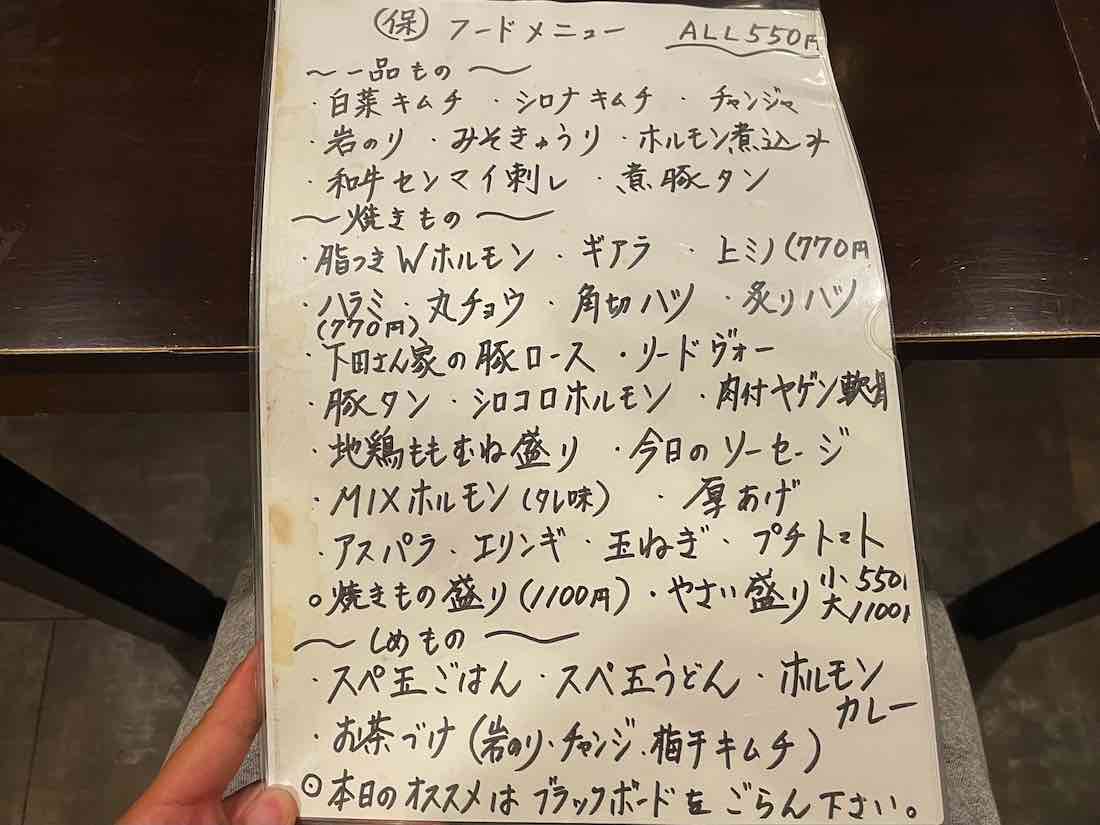 ㊑ フードメニュー ALL550円
〜一品もの〜
・白菜キムチ ・シロナキムチ ・チャンジャ
・岩のり ・みそきゅうり ・ホルモン煮込み
・和牛センマイ刺し ・煮豚タン
〜焼きもの〜
・脂つきWホルモン ・ギアラ ・上ミノ(770円
・ハラミ ・丸チョウ ・角切ハツ ・炙りハツ
(770円)
・下田さん家の豚ロース ・リードヴォー
・豚タン ・シロコロホルモン ・肉付ヤゲン軟骨
・地鶏ももむね盛り ・今日のソーセージ
・MIXホルモン(タレ味) ・厚あげ
・アスパラ ・エリンギ ・玉ねぎ ・プチトマト
○焼きもの盛り(1100円) ・やさい盛り 小550
大1100
〜しめもの〜
・スペ玉ごはん ・スペ玉うどん ・ホルモン
カレー
・お茶づけ(岩のり・チャンジ・梅干キムチ)
◎本日のオススメはブラックボードをごらん下さい。